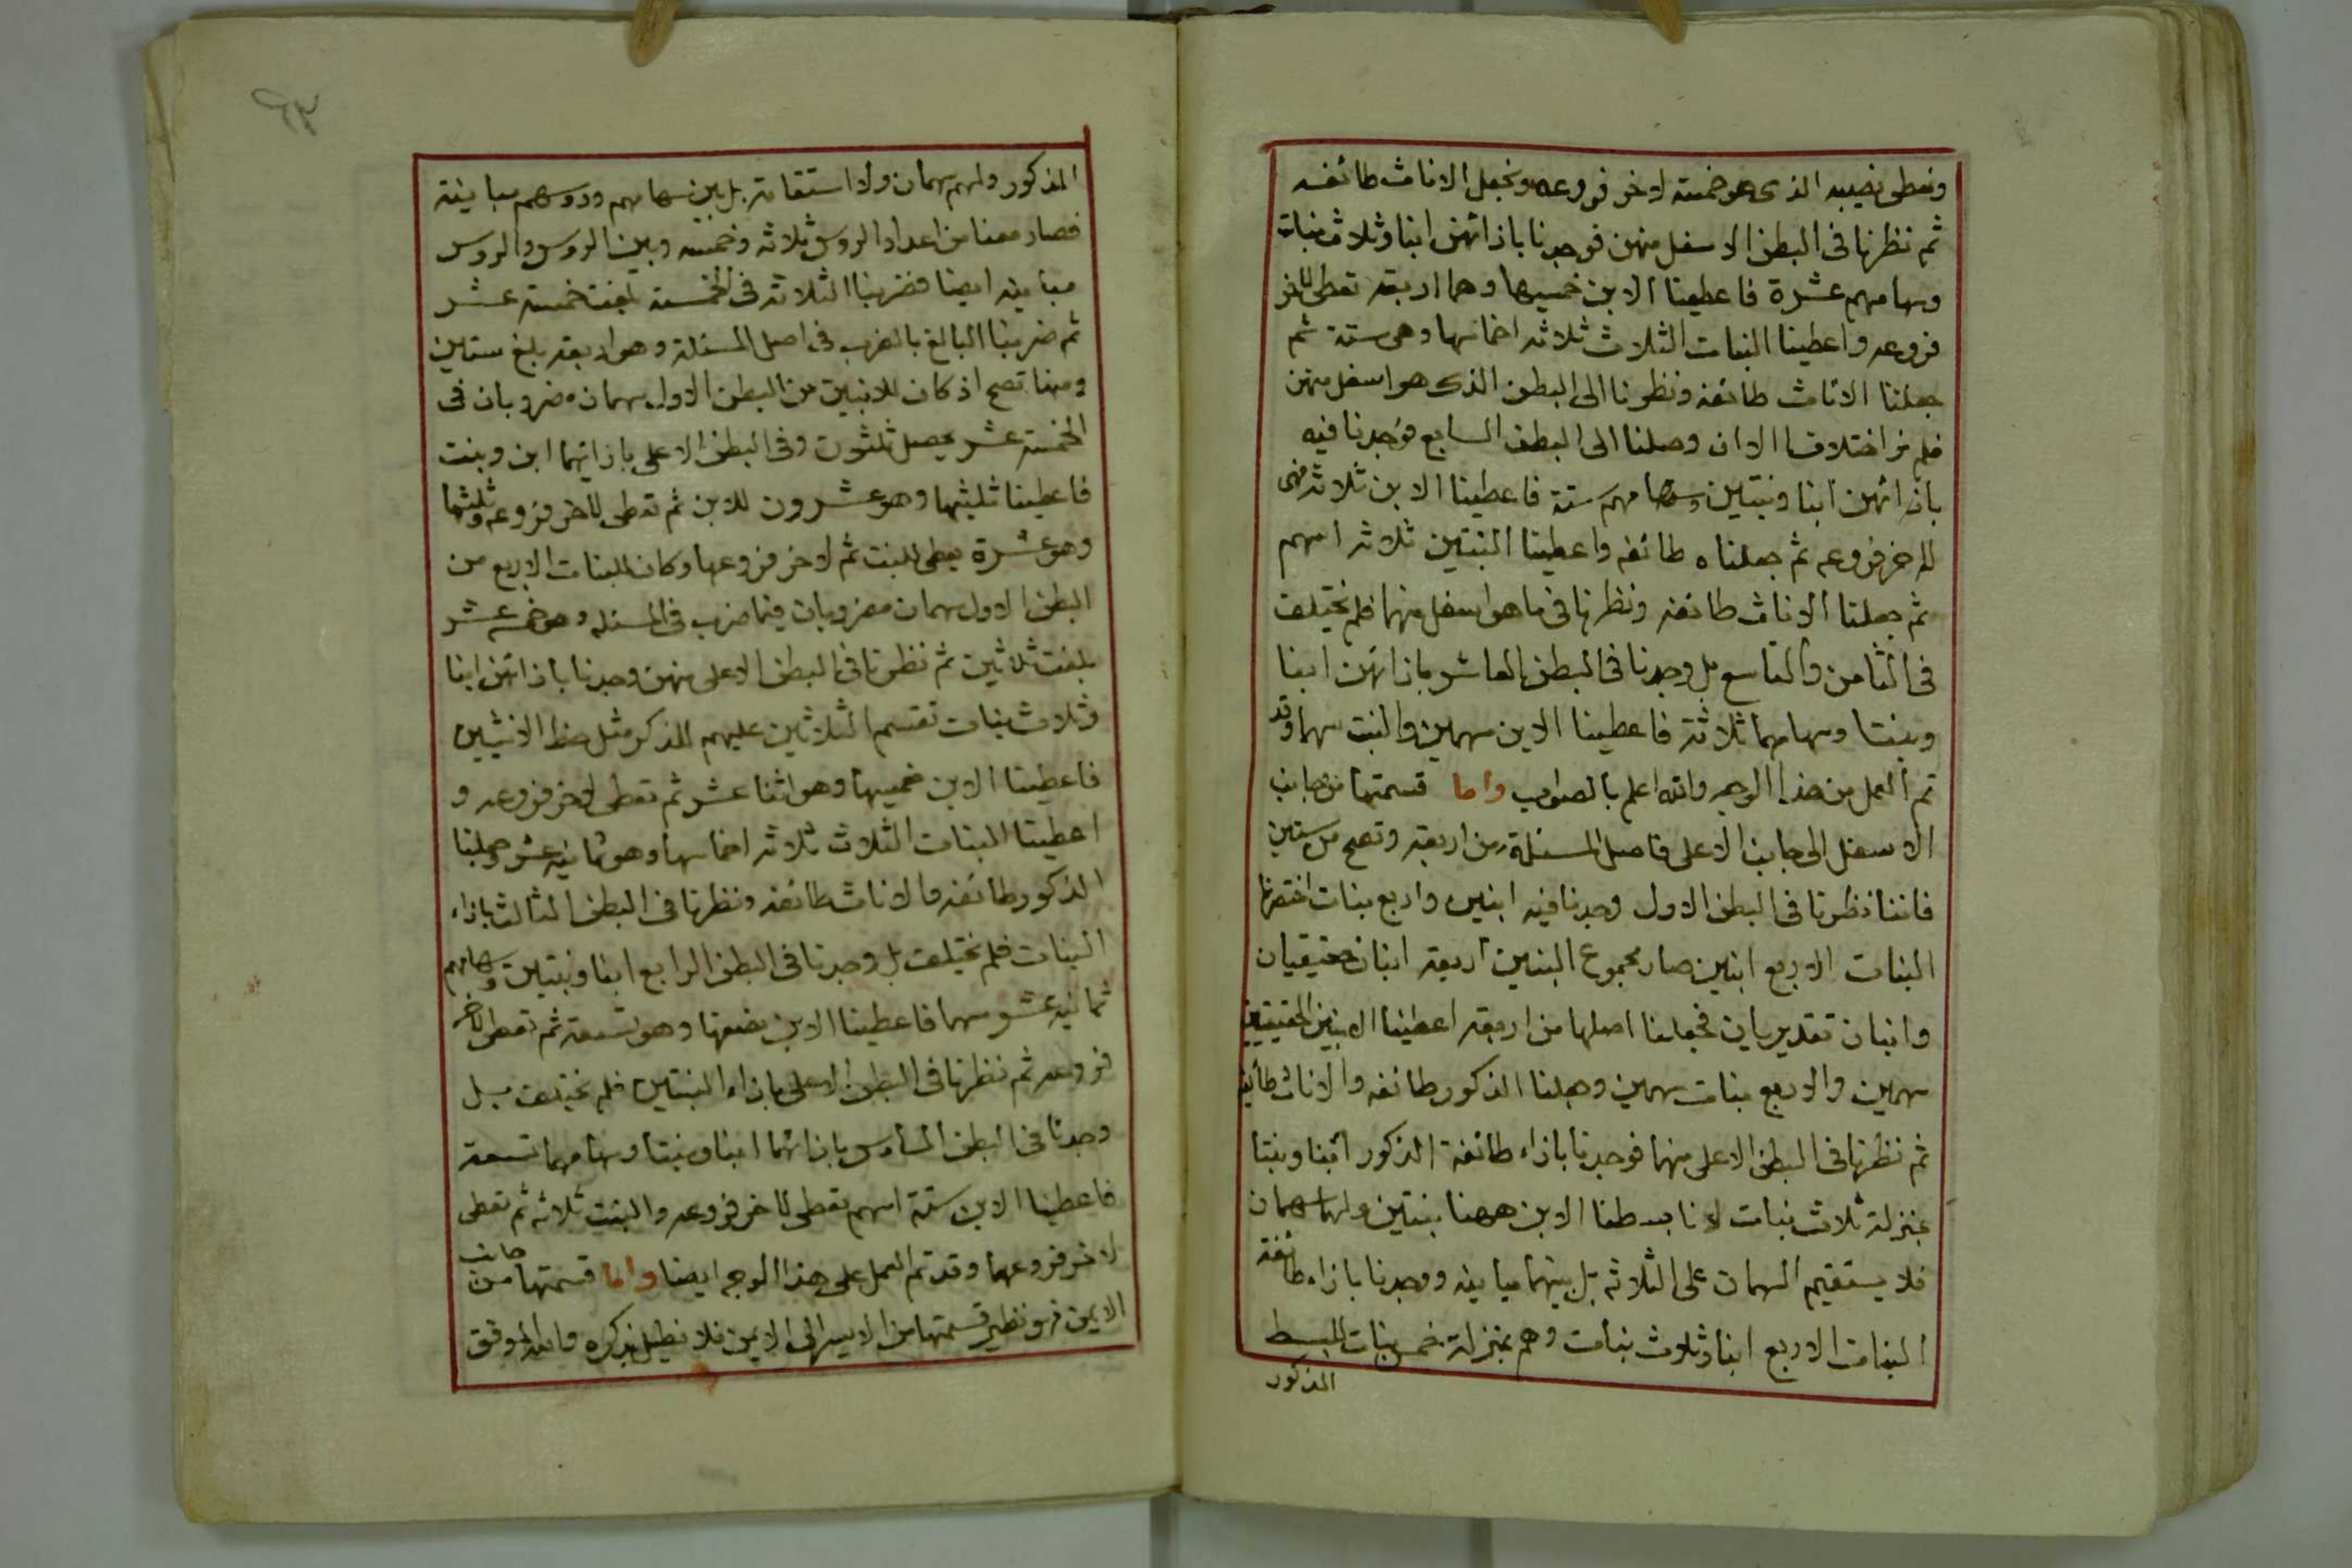 ونعطى نصيبه الذى هو خمسة لاخر فروعه ونجعل الاناث طائفه
ثم نظرنا فى البطن الاسفل منهن فوجدنا بازائهن ابنا وثلاث بنات
وسهامهم عشرة فاعطينا الابن خمسيها وهما اربعة تعطى لاخر
فروعه واعطينا البنات الثلاث ثلاثه اخماسها وهى ستة ثم
جعلنا الاناث طائفه ونظرنا الى البطن الذى هو اسفل منهن
فلم نر اختلافا الا ان وصلنا الى البطن السابع فوجدنا فيه
بازائهن ابنا وبنتين وسهامهم ستة فاعطينا الابن ثلاثه فهى
لاخر فروعه ثم جعلناه طائفه واعطينا البنتين ثلاثه اسهم
ثم جعلنا الاناث طائفه ونظرنا فى ما هو اسفل منهما فلم يختلف
فى الثامن والتاسع بل وجدنا فى البطن العاشر بازائهن ابنا
وبنتا وسهامهما ثلاثة فاعطينا الابن سهمين والبنت سهما وقد
تم العمل من هذا الوجه والله اعلم بالصواب واما قسمتها من جانب
الاسفل الى جانب الاعلى فاصل المسئلة من اربعه وتصح من ستين
فاننا نظرنا فى البطن الاول وجدنا فيه ابنين واربع بنات اختصرنا
البنات الاربع ابنين صار مجموع البنين اربعه ابنان حقيقيان
وابنان تقديريان فجعلنا اصلها من اربعه اعطينا الابنين الحقيقيين
سهمين والاربع بنات سهمين وجعلنا الذكور طائفه والاناث طائفه
ثم نظرنا فى البطن الاعلى منهما فوجدنا بازاء طائفة الذكور ابنا وبنتا
بمنزلة ثلاث بنات لانا بسطنا الابن ههنا بنتين ولهما سهمان
فلا يستقيم السهمان على الثلاثه بل بينهما مباينه ووجدنا بازاء طائفة
البنات الاربع ابنا وثلاث بنات وهم بمنزلة خمس بنات للبسط
المذكور
المذكور ولهم سهمان ولا استقامة بل بين سهامهم وروسهم مباينة
فصار معنا من اعداد الروس ثلاثه وخمسه وبين الروس والروس
مباينه ايضا فضربنا الثلاثة فى الخمسة بلغت خمسة عشر
ثم ضربنا البالغ بالضرب فى اصل المسئلة وهو اربعه بلغ ستين
ومنها تصح اذ كان للابنين من البطن الاول سهمان مضروبان فى
الخمسة عشر يحصل ثلثون وفى البطن الاعلى بازائهما ابن وبنت
فاعطينا ثلثيها وهو عشرون للابن ثم تعطى لاخر فروعه وثلثها
وهو عشرة يعطى للبنت ثم لاخر فروعها وكان للبنات الاربع من
البطن الاول سهمان مضروبان فيما ضرب فى المسئله وهو خمسه عشر
بلغت ثلاثين ثم نظرنا فى البطن الاعلى منهن وجدنا بازائهن ابنا
وثلاث بنات تقسم الثلاثين عليهم للذكر مثل حظ الانثيين
فاعطينا الابن خمسيها وهو اثنا عشر ثم تعطى لاخر فروعه و
اعطينا البنات الثلاث ثلاثه اخماسها وهو ثمانيه عشر وجعلنا
الذكور طائفه والاناث طائفه ونظرنا فى البطن الثالث بازاء
البنات فلم تختلف بل وجدنا فى البطن الرابع ابنا وبنتين وسهامهم
ثمانيه عشر سهما فاعطينا الابن نصفها وهو تسعة ثم تعطى لاخر
فروعه ثم نظرنا فى البطن الاعلى بازاء البنتين فلم تختلف بل
وجدنا فى البطن السادس بازائهما ابنا وبنتا وسهامهما تسعة
فاعطينا الابن ستة اسهم تعطى لاخر فروعه والبنت ثلاثه ثم تعطى
لاخر فروعهما وقد تم العمل على هذا الوجه ايضا واما قسمتها من جانب
الايمن فهو نظير قسمتها من الايسر الى الايمن فلا نطيل بذكره والله الموفق